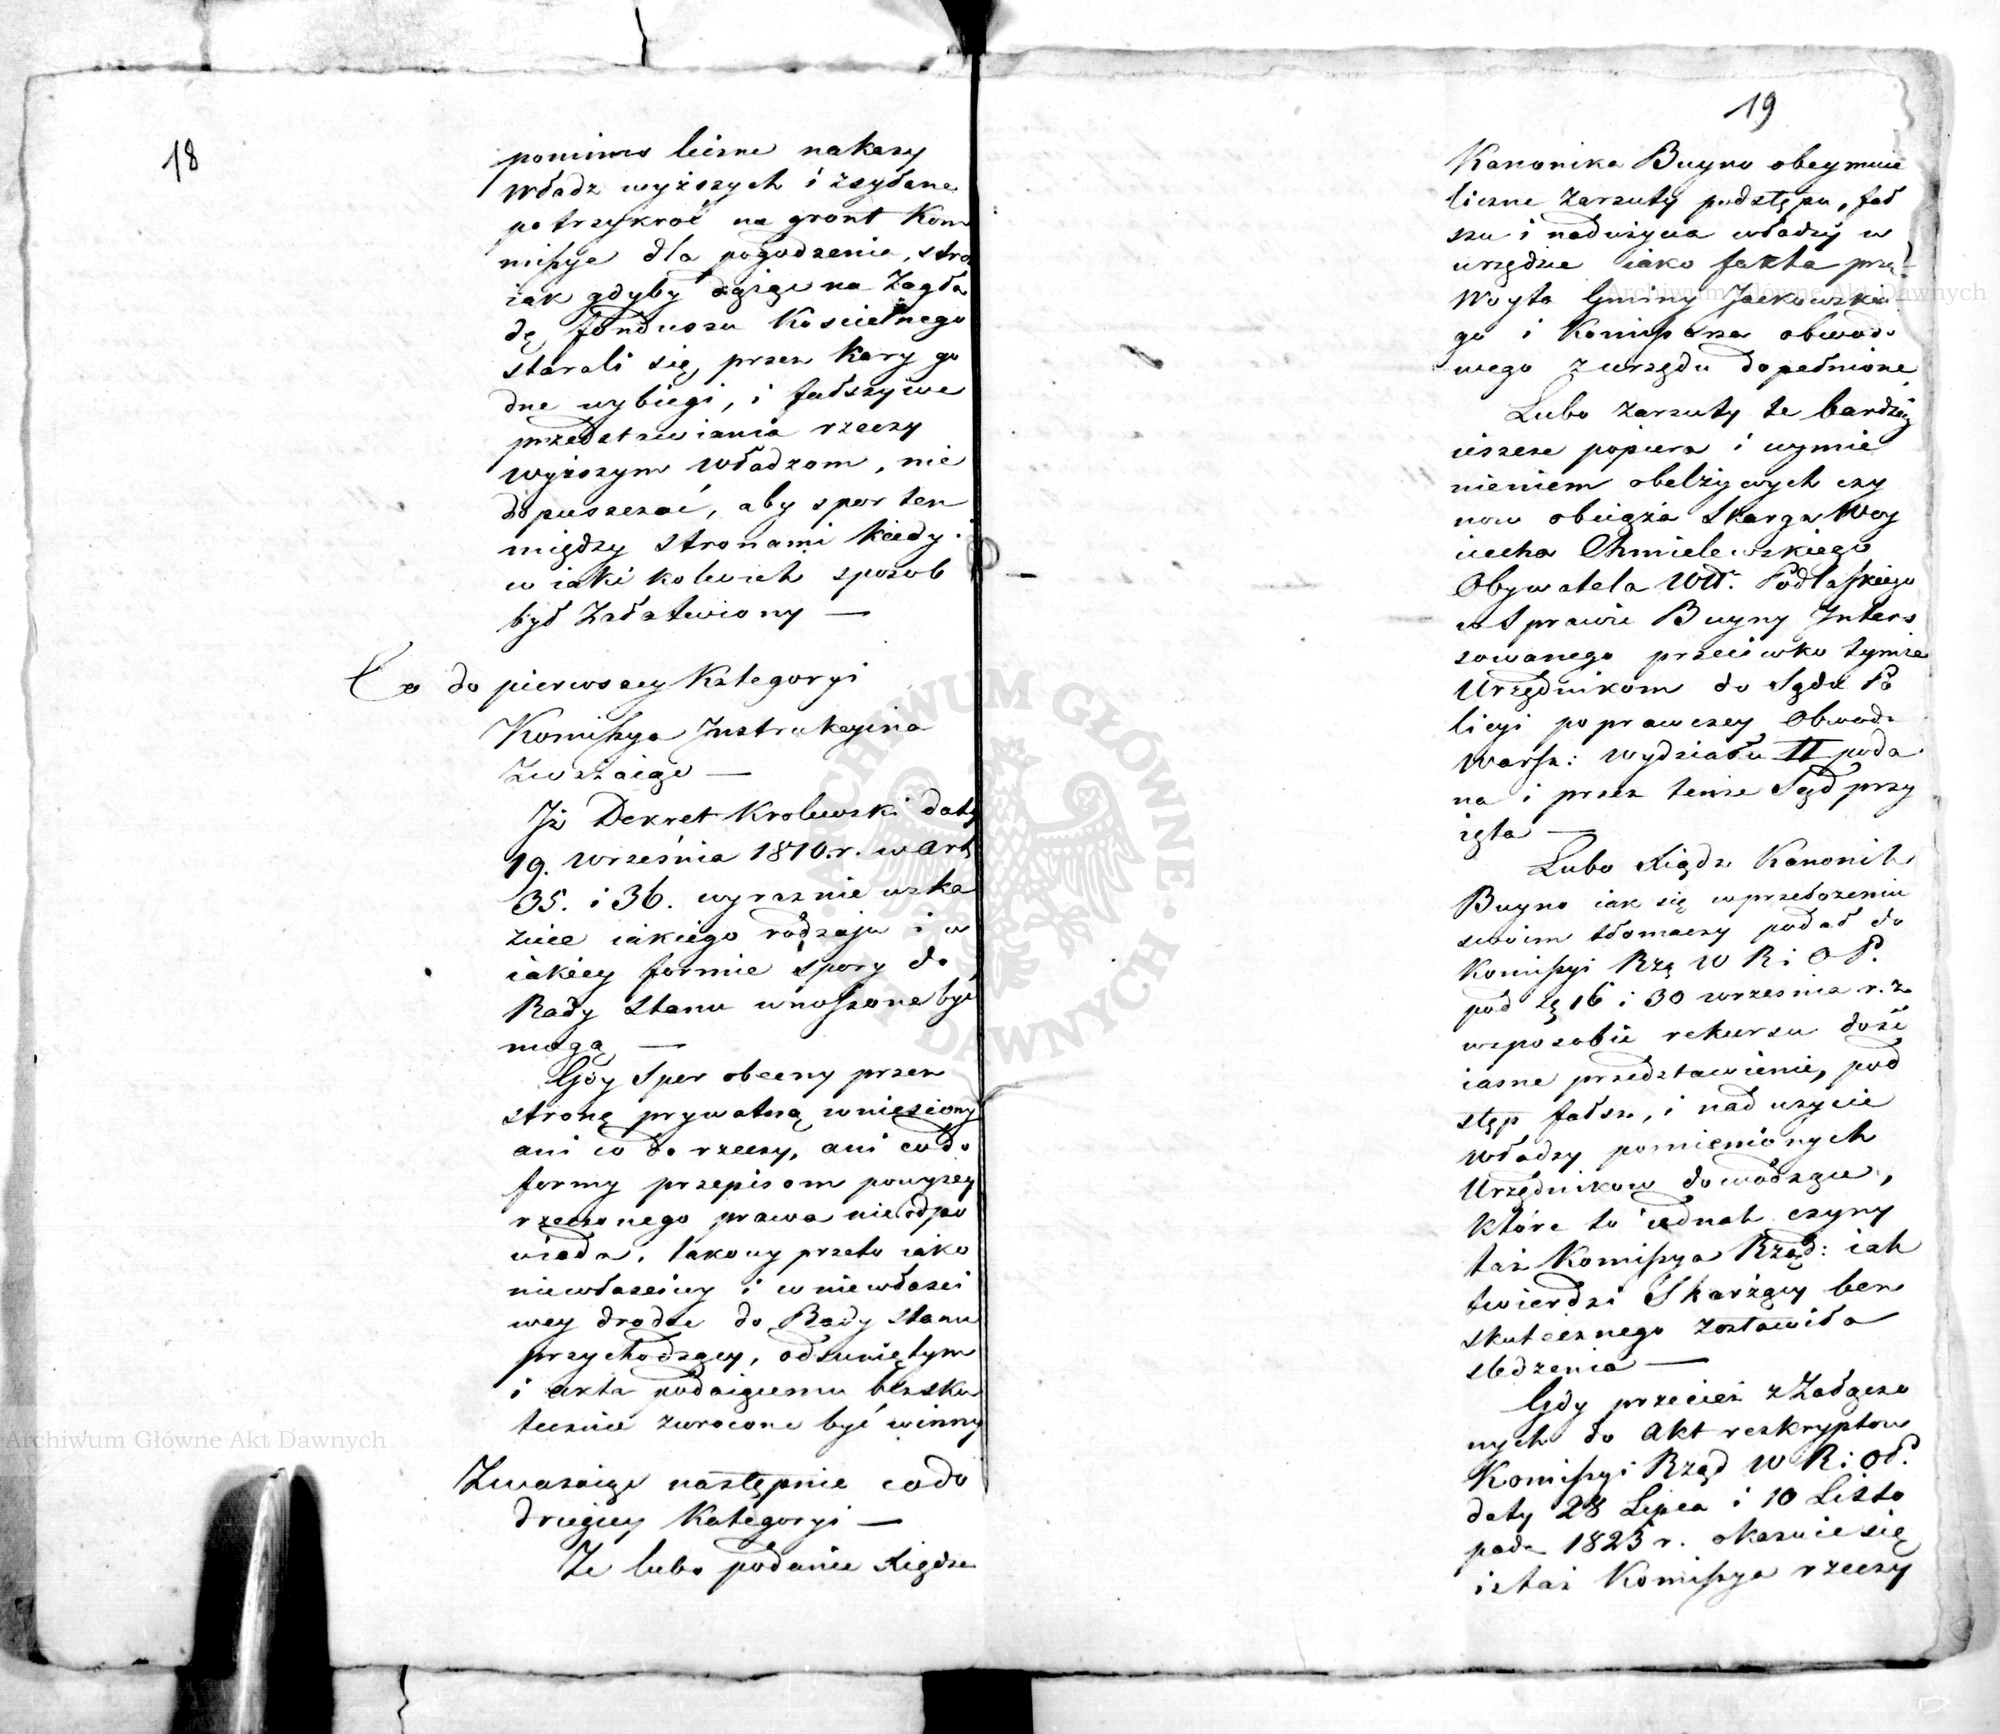 18
pomimo liczne nakazy
Władz wyższych i zsyłane
po trzykroć na gront Kom
mißye dla pogodzenia, stro
iak gdyby dążąc na Zagła
dę, fonduszu Koscielnego
starali się, przez Kary go
dne wybiegi, i fałszywe
przedstawiania rzeczy
wyższym Władzom, nie
dopuszczać, aby spor ten
między stronami kiedy
w iaki kolwiek sposob
był Załatwiony —
Co do pierwszey Kategoryi
Komißya Instrukcyina
Zważaiąc —
Iż Dekret Krolewski daty
19. Września 1810. r. w Art
35. i 36. wyraznie wska
zuie iakiego rodzaju i w
iakiey formie spory do
Rady Stanu wnoszone być
mogą —
Gdy Spor obecny przez
stronę prywatną wniesiony
ani co do rzeczy, ani co do
formy przepisom powyżey
rzeczonego prawa nie odpo
wiada, takowy przeto iako
niewłaściwy i w niewłaści
wey drodze do Rady Stanu
przychodzący, odsuniętym
i akta podaiącemu bezsku
tecznie zwrocone być winny
Zważaiąc następnie co do
drugiey Kategoryi —
Ze lubo podanie Xiędza
19
Kanonika Buyno obeymuie
liczne Zarzuty podstępu, fał
szu i nadużycia władzy w
urzędzie iako fakta przez
Woyta Gminy Jackowskie
go i Komißarza obwodo
wego z urzędu dopełnione
Lubo Zarzuty te bardziey
ieszcze popiera i wymie
nieniem obelżywych czy
now obciąża Skarga Woy
ciecha Chmielewskiego
Obywatela Wdt. Podlaskiego
w Sprawie Buyny Interes
sowanego przeciwko tymże
Urzędnikom do Sądu Po
licyi poprawczey Obwodu
Warsz: Wydziału II poda
na i przez tenże Sąd przy
ięta —
Lubo Xiądz Kanonik
Buyno iak się w przełożeniu
swoim tłomaczy podał do
Komißyi Rzą W R i O P.
pod dą 16 i 30 września r. z.
w sposobie rekursu dość
iasne przedstawienie, pod
stęp fałsz, i nadużycie
Władzy pomienionych
Urzędnikow dowodzące,
które to iednak czyny
taż Komißya Rząd: iak
twierdzi Skarżący bez
skutecznego zostawiła
sledzenia —
Gdy przecież z Załączo
nych do Akt reskryptow
Komißyi Rząd W R i O P.
daty 28 Lipca i 10 Listo
pada 1823 r. okazuie się
iż taż Komißya rzeczy